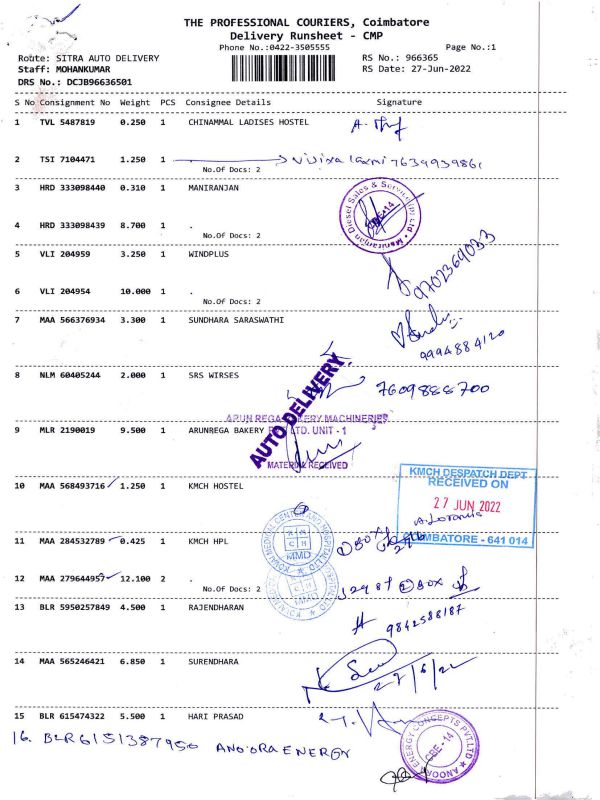 THE PROFESSIONAL COURIERS, Coimbatore
Delivery Runsheet - CMP
Phone No.:0422-3505555
Page No.:1
Route: SITRA AUTO DELIVERY
RS No.: 966365
Staff: MOHANKUMAR
RS Date: 27-Jun-2022
DRS No.: DCJB96636501
S No Consignment No Weight PCS Consignee Details Signature
1 TVL 5487819 0.250 1 CHINAMMAL LADISES HOSTEL
2 TSI 7104471 1.250 1
No.Of Docs: 2
3 HRD 333098440 0.310 1 MANIRANJAN
Maniranjan Diesel Sales & Service (P) Ltd
CBE-14
4 HRD 333098439 8.700 1 .
No.Of Docs: 2
5 VLI 204959 3.250 1 WINDPLUS
9702369033
6 VLI 204954 10.000 1 .
No.Of Docs: 2
7 MAA 566376934 3.300 1 SUNDHARA SARASWATHI
9994884120
8 NLM 60405244 2.000 1 SRS WIRSES
7609888700
AUTO DELIVERY
ARUN REGA BAKERY MACHINERIES
LTD. UNIT - 1
9 MLR 2190019 9.500 1 ARUNREGA BAKERY
MATERIAL RECEIVED
KMCH DESPATCH DEPT
RECEIVED ON
27 JUN 2022
COIMBATORE - 641 014
10 MAA 568493716 1.250 1 KMCH HOSTEL
11 MAA 284532789 0.425 1 KMCH HPL
MMD
12 MAA 279644957 12.100 2 .
No.Of Docs: 2
13 BLR 5950257849 4.500 1 RAJENDHARAN
9842588187
14 MAA 565246421 6.850 1 SURENDHARA
27/6/22
15 BLR 615474322 5.500 1 HARI PRASAD
16. BLR6151387950 ANOORA ENERGY
ANOORA ENERGY CONCEPTS PVT.LTD
CBE-14